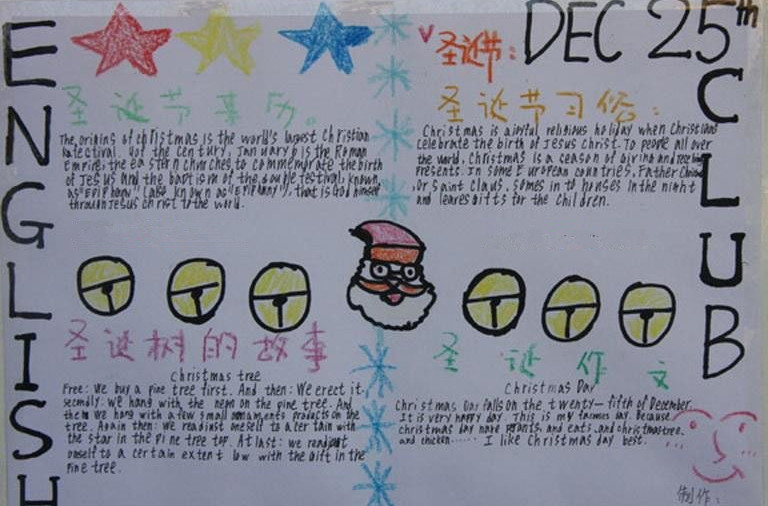 ENGLISH
CLUB
圣诞节: DEC 25th
圣诞节来历。
The origins of christmas is the world's largest Christian
festival. 4 of the century, January 6 is the Roman
Empire; the EASTERN churches to commemorate the birth
of Jesus and the baptism of the double festival, known,
as "EPiphany" (also known as "Epiphany"), that is God himself
through Jesus christ to the world.
圣诞节习俗:
Christmas is a joyful religious holiday when Christians
celebrate the birth of Jesus Christ. To people all over
the world, Christmas is a season of giving and
presents. In some European countries, Father
Or Saint Claus, somes in to houses in the night
and leares gifts for the children.
圣诞树的故事
Christmas tree
Free: We buy a pine tree first. And then: We erect it.
secondly: we hang with the neon on the pine tree. And
then We hang with a few small ornaments products on the
tree. Again then: we readjust oneself to a certain with
the star in the Pine tree top. At last: we readjust
onself to a certain extent low with the gift in the
Pine tree.
圣诞作文
Christmas Day
Christmas Day falls on the twenty-fifth of December.
It is very happy day. This is my day. Because
christmas day have and eats, and christmastree.
and chicken...... I like Christmas day best.
制作: